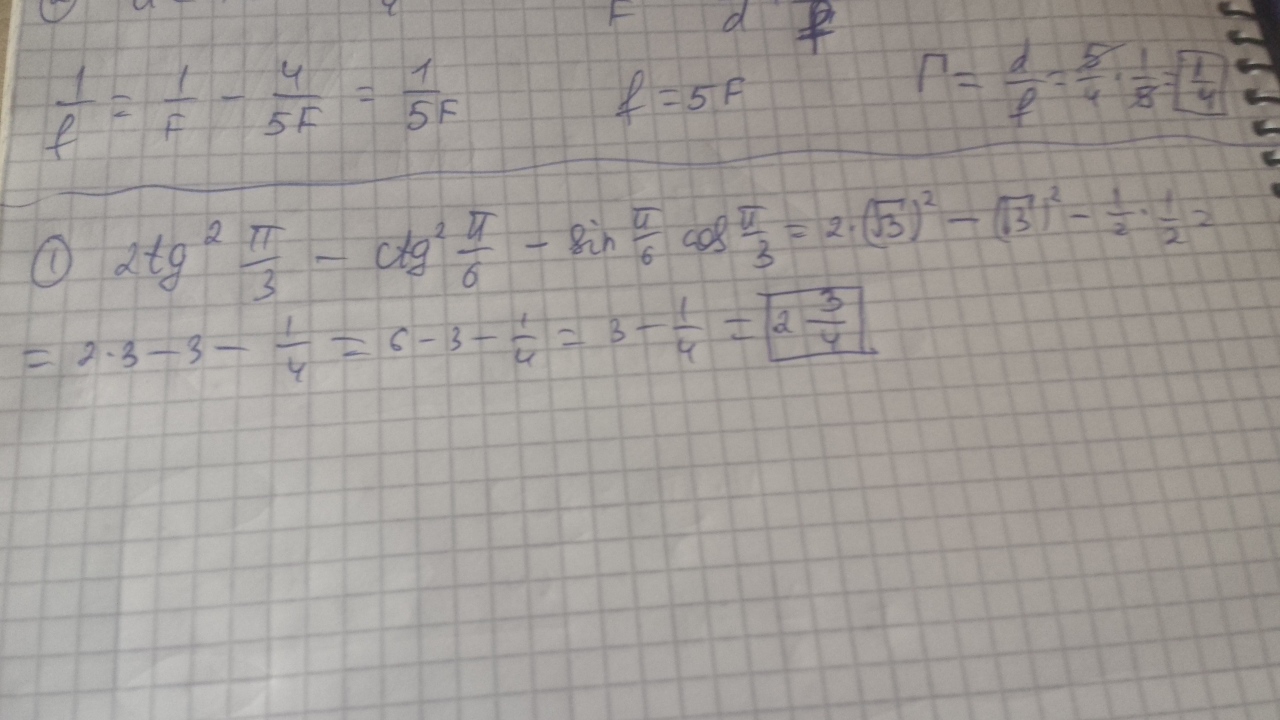 F d f
1/f = 1/F - 4/5F = 1/5F f = 5F Г = d/f = 5/4 · 1/5 = 1/4
① 2tg² π/3 - ctg² π/6 - sin π/6 cos π/3 = 2·(√3)² - (√3)² - 1/2 · 1/2 =
= 2·3 - 3 - 1/4 = 6 - 3 - 1/4 = 3 - 1/4 = 2 3/4